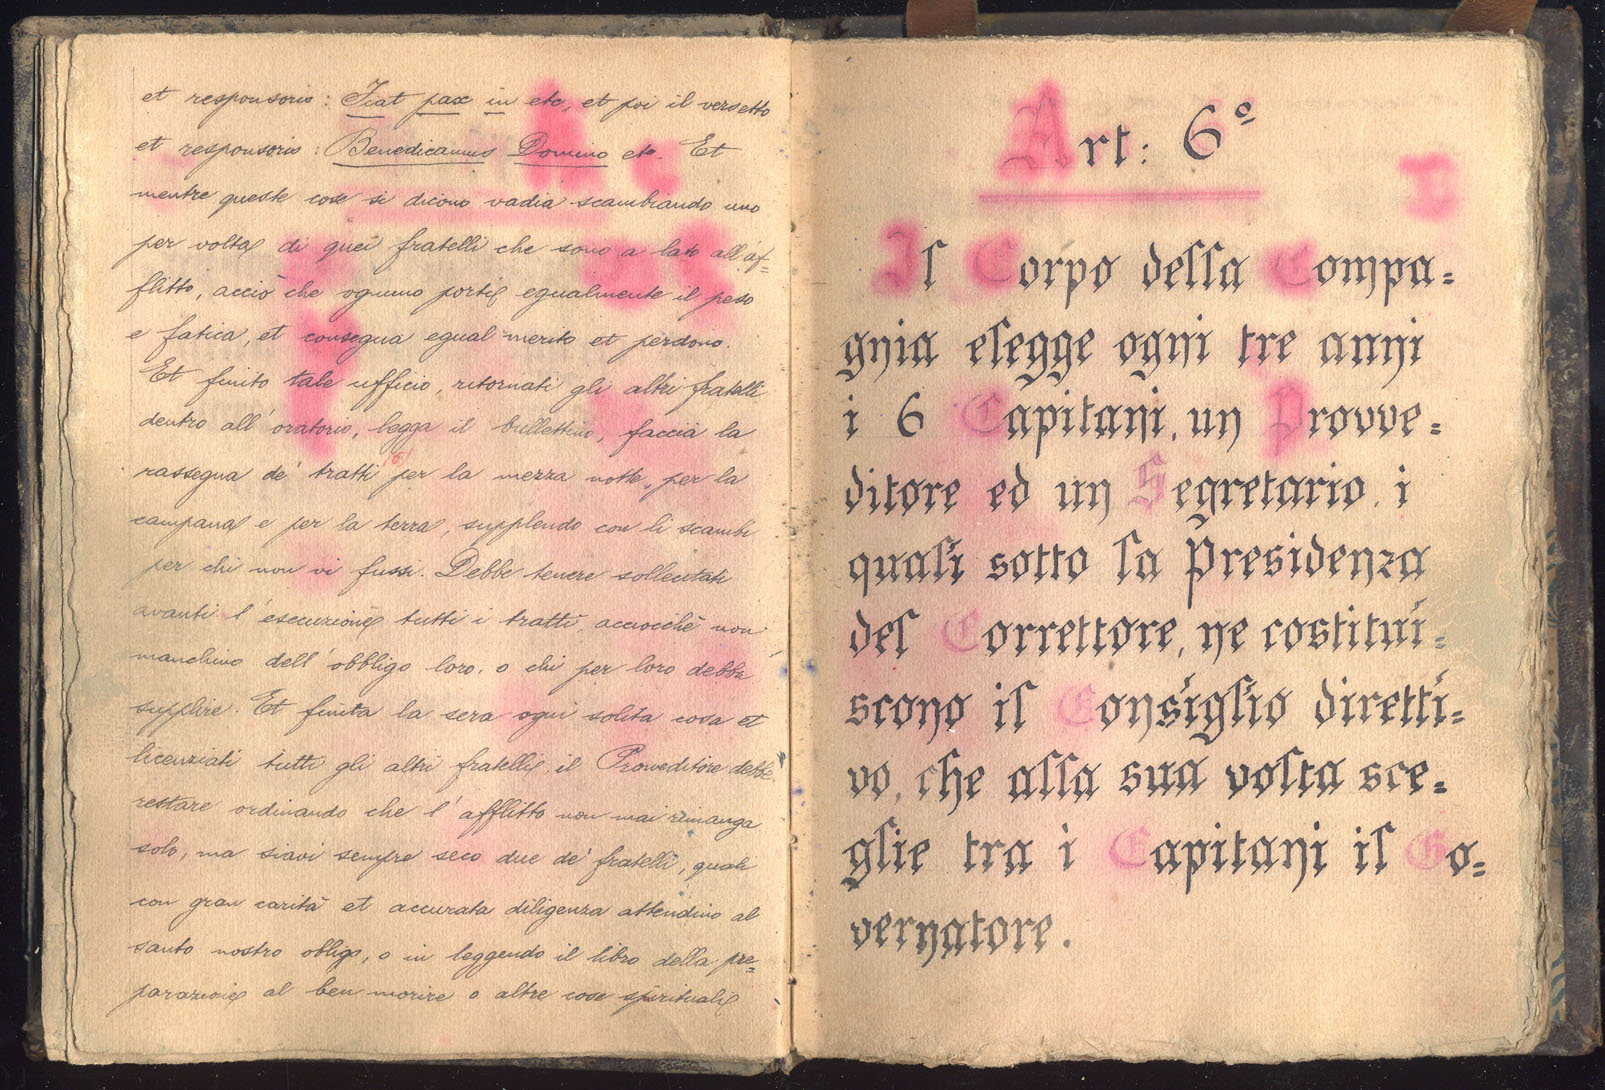 et responsorio: Fiat pax in etc, et poi il versetto
et responsorio: Benedicamus Domino etc. Et
mentre queste cose si dicono vadia scambiando uno
per volta di quei fratelli che sono a lato all'af=
flitto, acciò che ognuno porti egualmente il peso
e fatica, et consegua egual merito et perdono.
Et finito tale ufficio, ritornati gli altri fratelli
dentro all'oratorio, legga il bullettino, faccia la
rassegna de' tratti per la mezza notte, per la
campana e per la terra, supplendo con li scambi
per chi non vi fussi. Debbe tenere sollecitati
avanti l'esecuzione tutti i tratti, acciocchè non
manchino dell'obbligo loro, o chi per loro debba
supplire. Et finita la sera ogni solita cosa et
licenziati tutti gli altri fratelli, il Proveditore debbe
restare ordinando che l'afflitto non mai rimanga
solo, ma siavi sempre seco due de' fratelli, quali
con gran carità et accurata diligenza attendino al
santo nostro obligo, o in leggendo il libro della pre=
parazione al ben morire o altre cose spirituali
Art: 6º
Il Corpo della Compa=
gnia elegge ogni tre anni
i 6 Capitani, un Provve=
ditore ed un Segretario, i
quali sotto la Presidenza
del Correttore, ne costitui=
scono il Consiglio diretti=
vo, che alla sua volta sce=
glie tra i Capitani il Go=
vernatore.